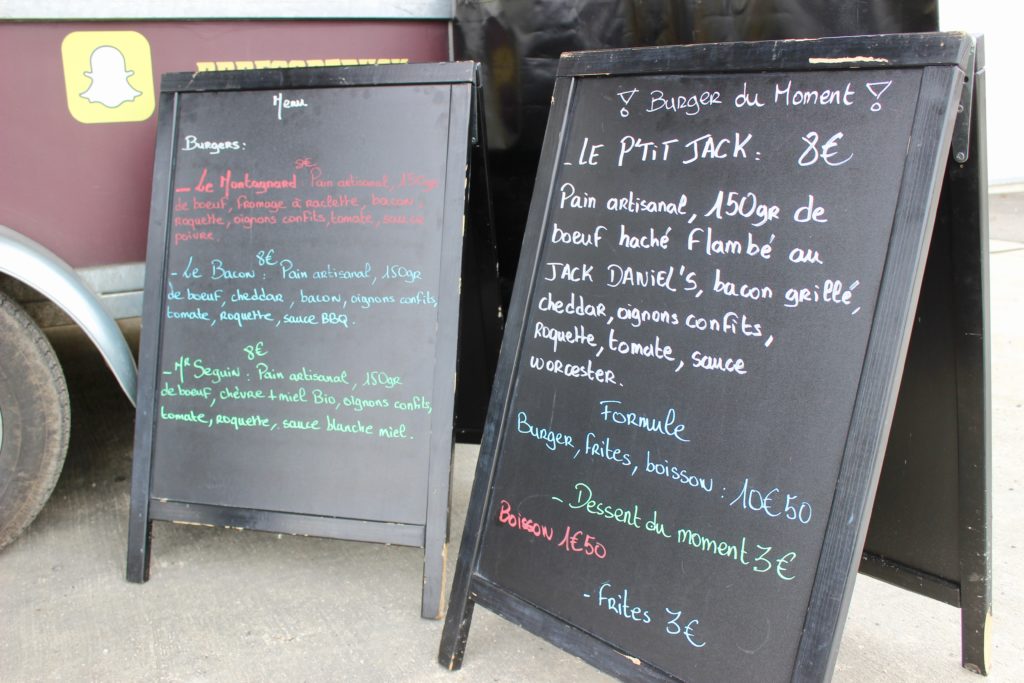 Menu
Burgers:
- Le Montagnard Pain artisanal, 150gr
de boeuf, fromage à raclette, bacon,
roquette, oignons confits, tomate, sauce
poivre.
8€
- Le Bacon: Pain artisanal, 150gr
de boeuf, cheddar, bacon, oignons confits,
tomate, roquette, sauce BBQ.
8€
- Mr Seguin: Pain artisanal, 150gr
de boeuf, chèvre + miel Bio, oignons confits,
tomate, roquette, sauce blanche miel.
Burger du Moment
- LE P'TIT JACK: 8€
Pain artisanal, 150gr de
boeuf haché flambé au
JACK DANIEL'S, bacon grillé,
cheddar, oignons confits,
Roquette, tomate, sauce
worcester.
Formule
Burger, frites, boisson: 10€50
- Dessent du moment 3€
Boisson 1€50
- Frites 3€